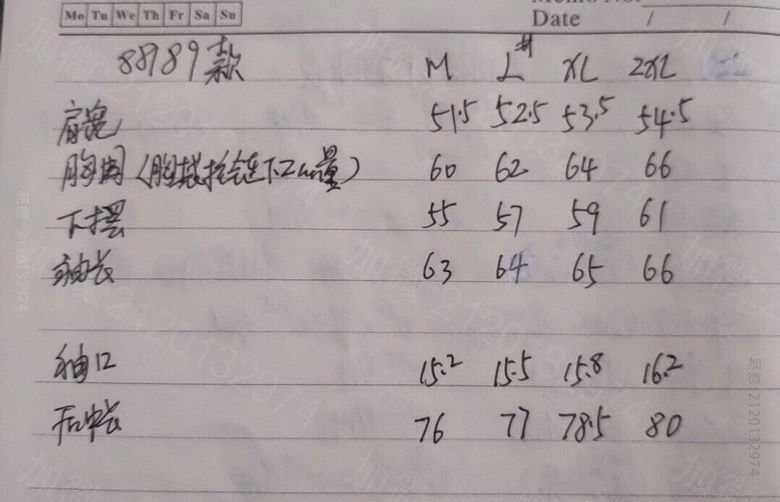 Mo Tu We Th Fr Sa Su
Memo No.
Date / /
88989款 M L# XL 2XL
肩宽 51.5 52.5 53.5 54.5
胸围（胸袋拉链下2cm量） 60 62 64 66
下摆 55 57 59 61
袖长 63 64 65 66
袖口 15.2 15.5 15.8 16.2
后中长 76 77 78.5 80
加微 2120132974